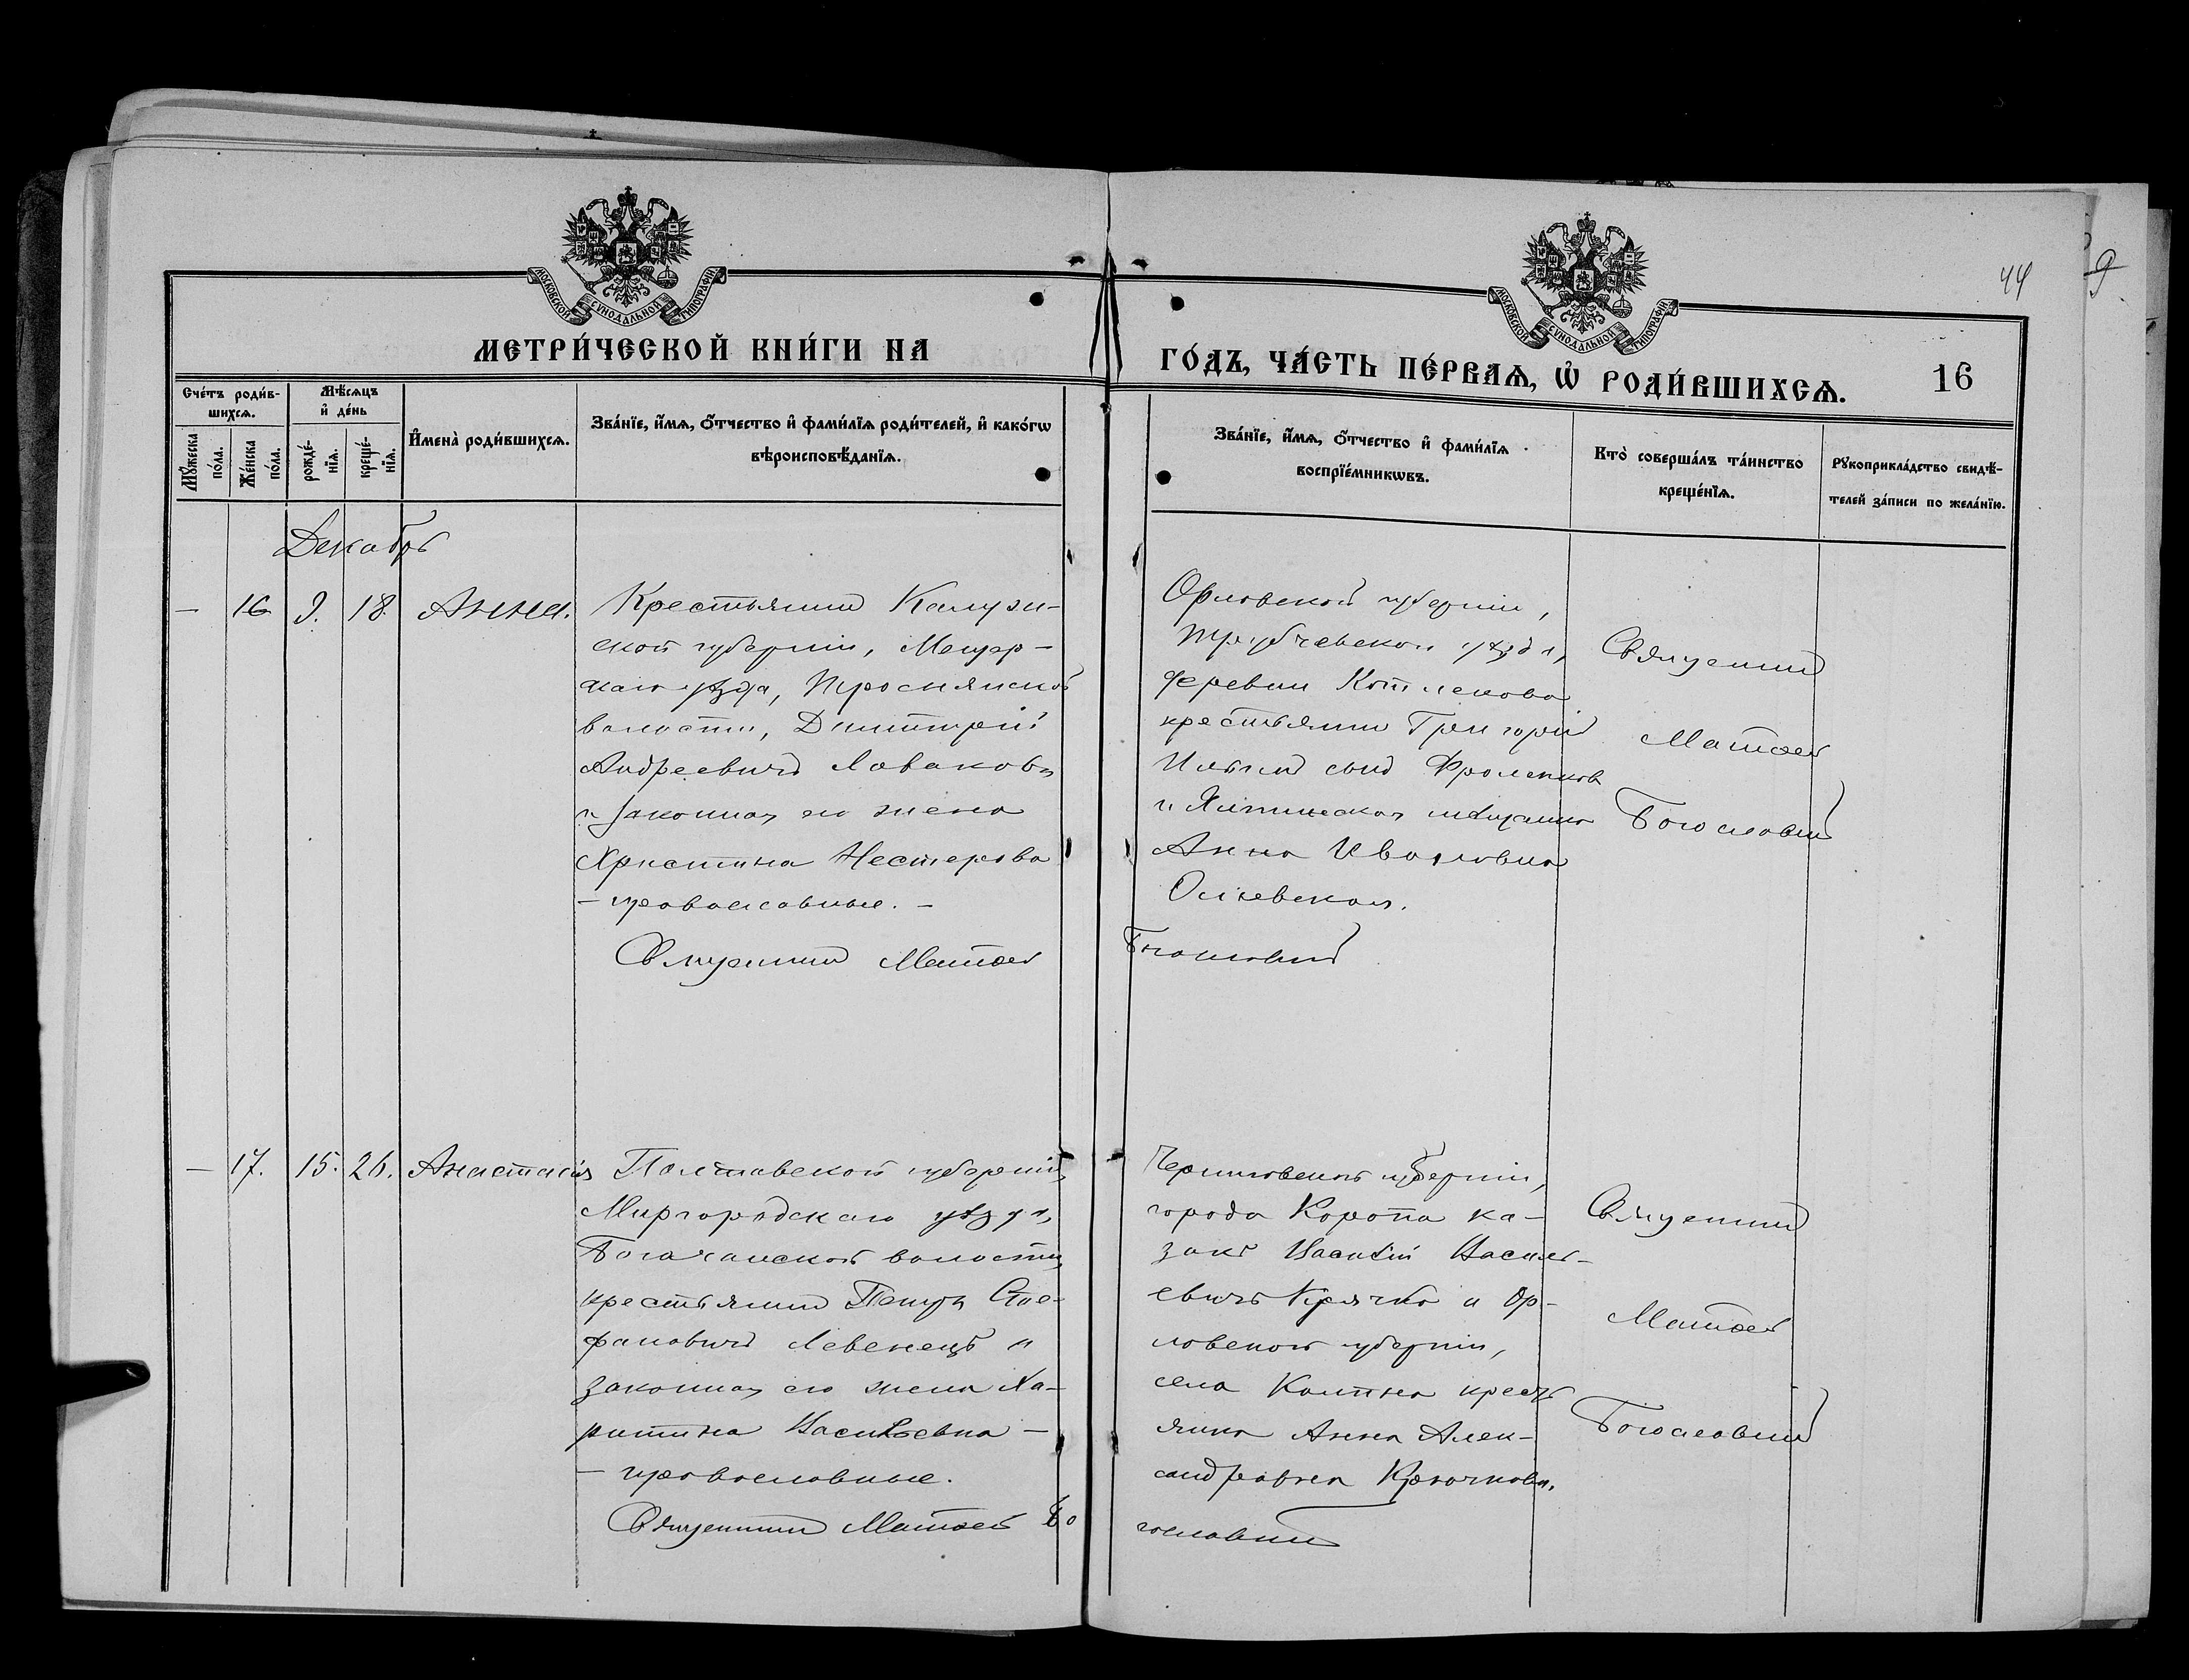 МОСКОВСКОЙ СѴНОДАЛЬНОЙ ТИПОГРАФІИ
МОСКОВСКОЙ СѴНОДАЛЬНОЙ ТИПОГРАФІИ
44
9
МЕТРИ́ЧЕСКОЙ КНИ́ГИ НА
ГО́ДЪ, ЧА́СТЬ ПЕ́РВАѦ, Ѡ҆ РОДИ́ВШИХСѦ.
16
Сче́тъ роди́в-
шихсѧ.
Мꙋ́жеска по́ла.
Же́нска по́ла.
Мѣ́сѧцъ
и҆ де́нь
рожде́-
нїѧ.
креще́-
нїѧ.
И҆мена̀ роди́вшихсѧ.
Зва́нїе, и҆́мѧ, о҆́тчество и҆ фами́лїѧ роди́телей, и҆ како́гѡ
вѣроисповѣ́данїѧ.
Зва́нїе, и҆́мѧ, о҆́тчество и҆ фами́лїѧ
воспрїе́мникѡвъ.
Кто̀ соверша́лъ та́инство
креще́нїѧ.
Рꙋкоприкла́дство свидѣ́-
телей за́писи по жела́нїю.
Декабрь
— 16 9. 18. Анна.
Крестьянинъ Калуж-
ской губерніи, Мещов-
скаго уѣзда,
волости, Димитрій
Андреевичъ
и законная его жена
Христина Нестерова
— православные. —
Священникъ Матѳей
Богословскій
Орловской губерніи,
Трубчевскаго уѣзда,
деревни
крестьянинъ Григорій
Ильинъ сынъ Фроленков
и Ялтинская мѣщанка
Анна Ивановна
Священникъ
Матѳей
Богословскій
— 17. 15. 26. Анастасія
Полтавской губерніи,
Миргородскаго уѣзда,
Богачанской волости,
крестьянинъ Петръ Сте-
фановичъ Левенецъ и
законная его жена Ха-
ритина Васильевна —
— православные.
Священникъ Матѳей Бо
гословскій
Черниговской губерніи,
города Коропа ка-
закъ Василій Василь-
евичъ Крячко и Ор-
ловской губерніи,
села крестъ
янка Анна Алек-
сандровна Крючкова.
Священникъ
Матѳей
Богословскій